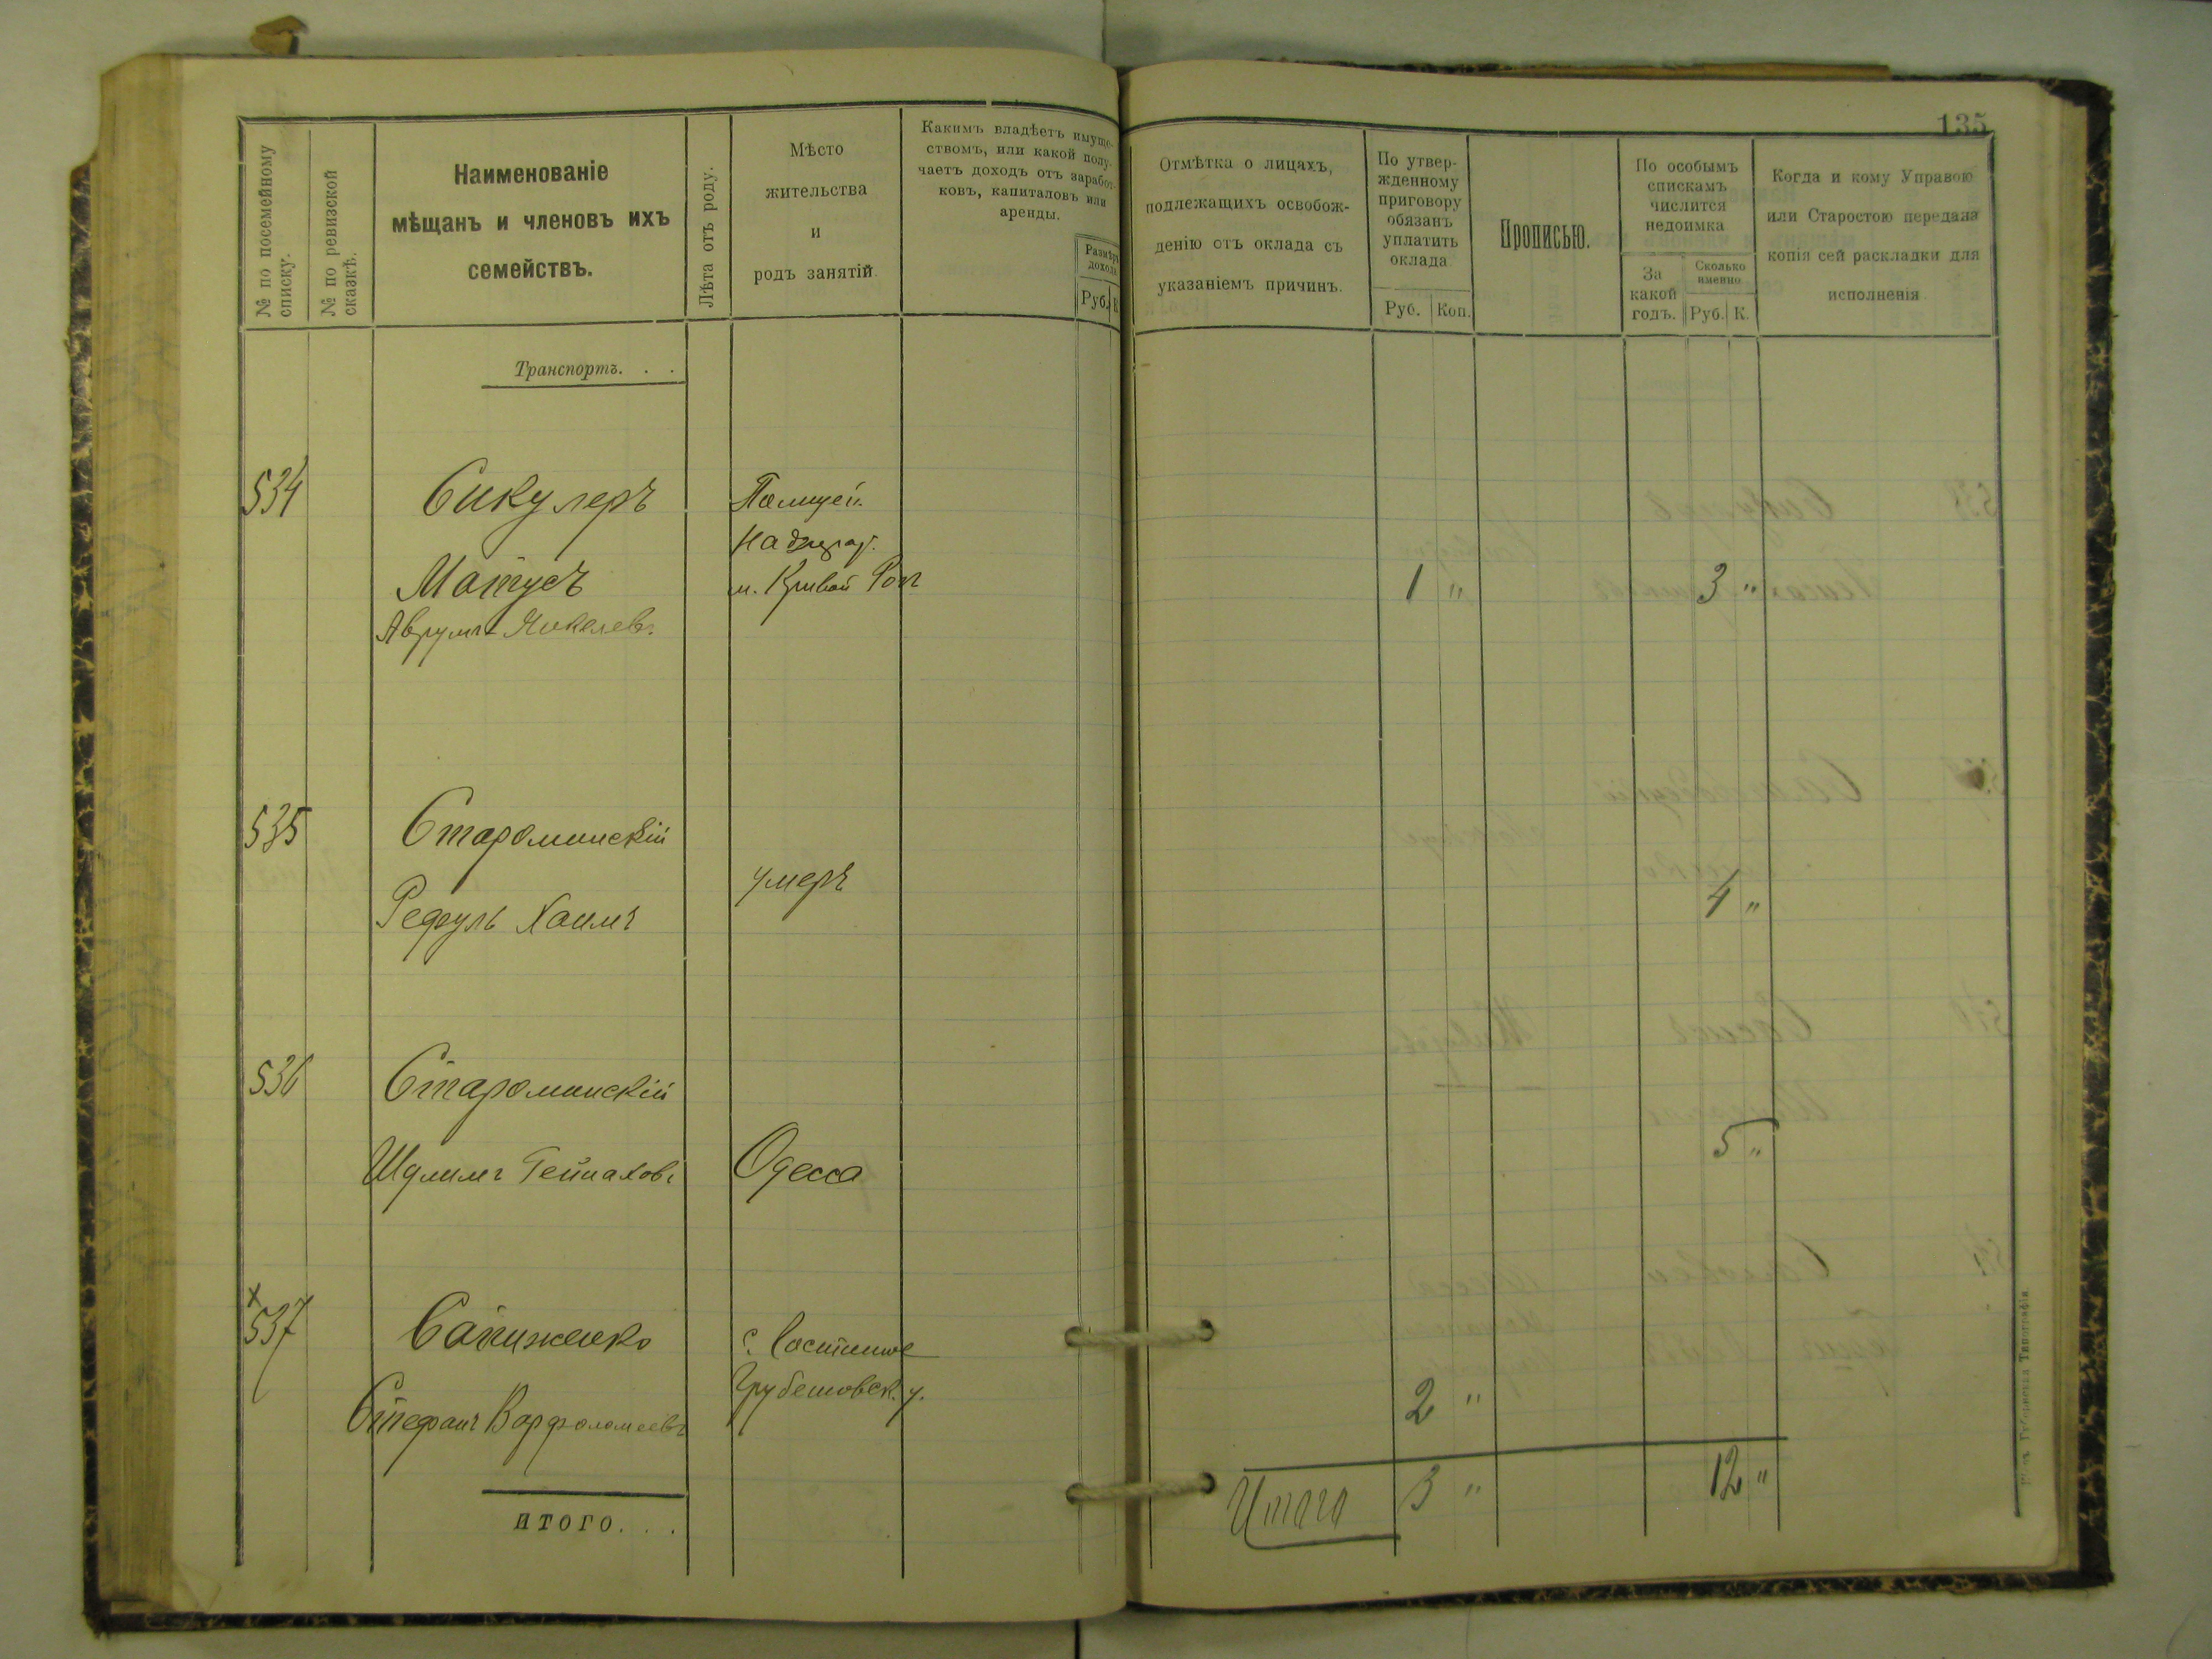 135
№ по посемейному списку.
№ по ревизской сказкѣ.
Наименованіе
мѣщанъ и членовъ ихъ
семействъ.
Лѣта отъ роду.
Мѣсто
жительства
и
родъ занятій
Какимъ владѣетъ имуще-
ствомъ, или какой полу-
чаетъ доходъ отъ заработ-
ковъ, капиталовъ или
аренды.
Размѣръ
дохода
Руб.
К
Отмѣтка о лицахъ,
подлежащихъ освобож-
денію отъ оклада съ
указаніемъ причинъ.
По утвер-
жденному
приговору
обязанъ
уплатить
оклада
Руб. Коп.
Прописью.
По особымъ
спискамъ
числится
недоимка
За
какой
годъ.
Сколько
именно
Руб. К.
Когда и кому Управою
или Старостою передана
копія сей раскладки для
исполненія
Транспортъ. . .
534
Сикулеръ
Матусъ
Аврумъ-Янкелев.
Полицей.
Надзират.
м. Кривой Рогъ
1 "
3 "
535
Староминскій
Рефуль Хаимъ
умеръ
4 "
536
Староминскій
Шулимъ
Одесса
5 "
х
537
Сапиженко
Стефанъ Варфоломеевъ
с.
Грубешовск. у.
2 "
итого. . .
Итого 3 " 12 "